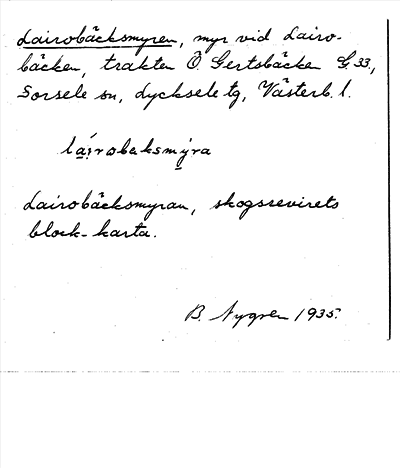 Lairobäcksmyren, myr vid Lairo-
bäcken, trakten Ö. Gertsbäcken G. 33,
Sorsele sn, Lycksele tg, Västerb. l.
lái̯robeksmýra
Lairobäcksmyran, skogsrevirets
block-karta.
B. Nygren 1935.